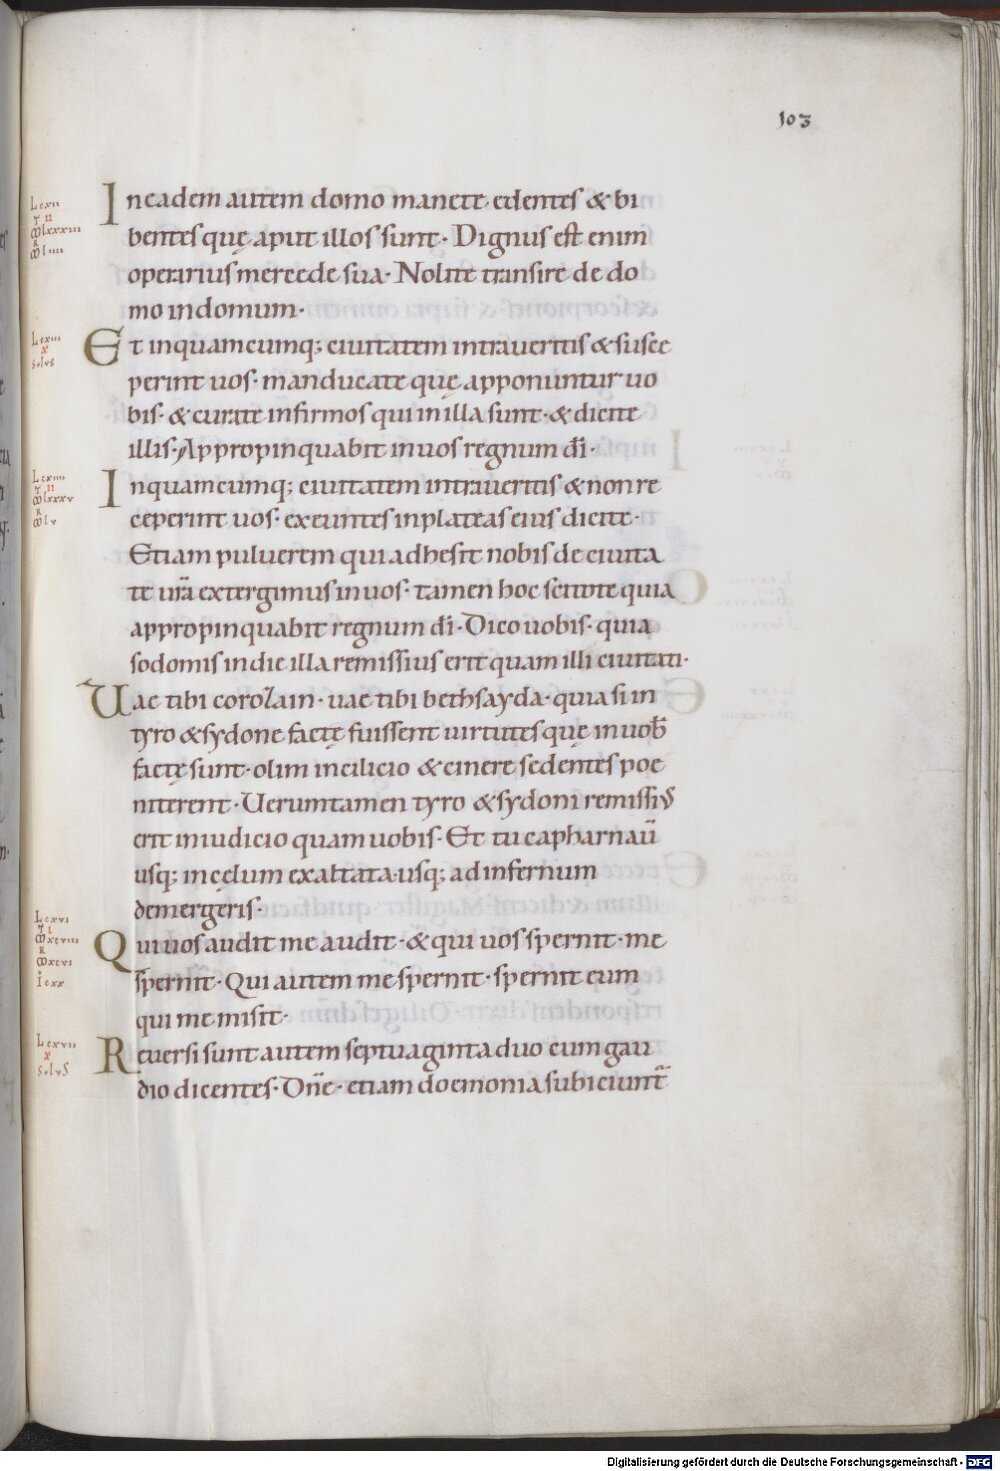 103
In eadem autem domo manete edentes & bi
bentes quę aput illos sunt· Dignus est enim
operarius mercede sua· Nolite transire de do
mo in domum·
Et in quamcumq; ciuitatem intraueritis & susce
perint uos· manducate quę apponuntur uo
bis· & curate infirmos qui in illa sunt· & dicite
illis· Appropinquabit in uos regnum dī·
In quamcumq; ciuitatem intraueritis & non re
ceperint uos· exeuntes in plateas eius dicite·
Etiam puluerem qui adhesit nobis de ciuita
te urā extergimus in uos· tamen hoc scitote quia
appropinquabit regnum dī· Dico uobis· quia
sodomis in die illa remissius erit quam illi ciuitati·
Uae tibi corozain· uae tibi bethsayda· quia si in
tyro & sydone factę fuissent uirtutes quę in uob̄
factę sunt· olim in cilicio & cinere sedentes poe
niterent· Uerumtamen tyro & sydoni remissiꝰ
erit in iudicio quam uobis· Et tu capharnaū
usq; in cęlum exaltata usq; ad infernum
demergeris·
Qui uos audit me audit· & qui uos spernit· me
spernit· Qui autem me spernit· spernit eum
qui me misit·
Reuersi sunt autem septuaginta duo cum gau
dio dicentes· Dn̄e· etiam doemonia subiciunt̄
L cxii
L cxiii
x
solus
L cxiiii
L cxvi
L cxvii
x
solus
Digitalisierung gefördert durch die Deutsche Forschungsgemeinschaft - DFG